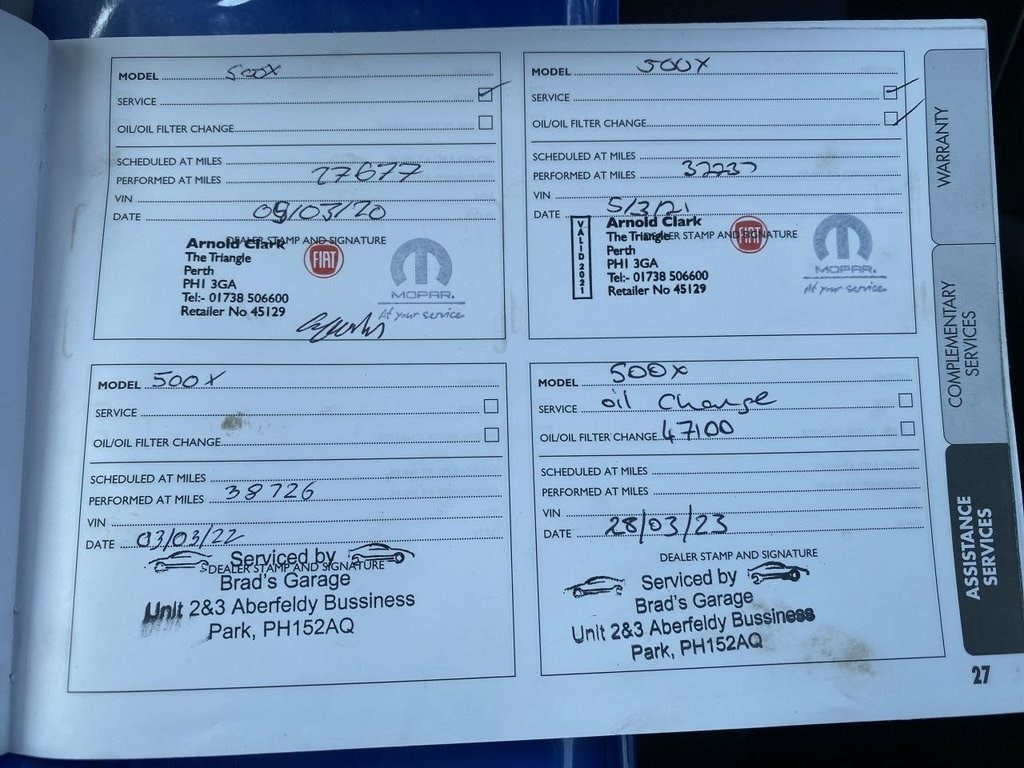 MODEL 500X
SERVICE
OIL/OIL FILTER CHANGE
SCHEDULED AT MILES
PERFORMED AT MILES 27677
VIN
DATE 09/03/20
DEALER STAMP AND SIGNATURE
Arnold Clark
The Triangle
Perth
PH1 3GA
Tel:- 01738 506600
Retailer No 45129
FIAT
MOPAR.
At your service
MODEL 500X
SERVICE
OIL/OIL FILTER CHANGE
SCHEDULED AT MILES
PERFORMED AT MILES 32237
VIN
DATE 5/3/21
DEALER STAMP AND SIGNATURE
VALID 2021
Arnold Clark
The Triangle
Perth
PH1 3GA
Tel:- 01738 506600
Retailer No 45129
FIAT
MOPAR.
At your service
MODEL 500X
SERVICE
OIL/OIL FILTER CHANGE
SCHEDULED AT MILES
PERFORMED AT MILES 38726
VIN
DATE 03/03/22
DEALER STAMP AND SIGNATURE
Serviced by
Brad's Garage
Unit 2&3 Aberfeldy Bussiness
Park, PH152AQ
MODEL 500X
SERVICE oil Change
OIL/OIL FILTER CHANGE 47100
SCHEDULED AT MILES
PERFORMED AT MILES
VIN
DATE 28/03/23
DEALER STAMP AND SIGNATURE
Serviced by
Brad's Garage
Unit 2&3 Aberfeldy Bussiness
Park, PH152AQ
WARRANTY
COMPLEMENTARY
SERVICES
ASSISTANCE
SERVICES
27